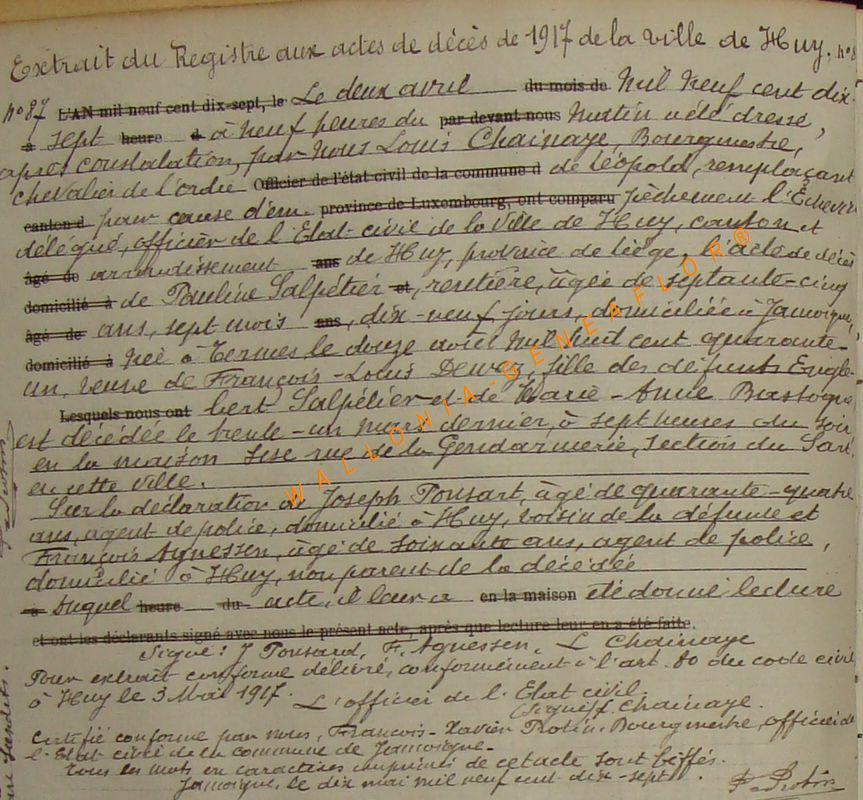 Extrait du Registre aux actes de décès de 1917 de la ville de Huy, n° 8
n° 87 L'AN mil neuf cent dix-sept, le Le deux avril du mois de Mil neuf cent dix-
à sept heure d à neuf heures du par devant nous matin a été dressé,
après constatation, par Nous Louis Chainaye, Bourgmestre,
Chevalier de l'ordre Officier de l'état civil de la commune d de Léopold, remplaçant
canton d pour cause d'em- province de Luxembourg, ont comparu pêchement l'Échevin
délégué, officier de l'Etat civil de la Ville de Huy, canton et
âgé de arrondissement ans de Huy, province de Liège, l'acte de décès
domicilié à de Pauline Salpétier et, rentière, âgée de septante-cinq
âgé de ans, sept mois ans, dix-neuf jours, domiciliée à Jamoigne,
domicilié à née à Termes le douze août Mil huit cent quarante-
un, veuve de François-Louis Dewez, fille des défunts Engle-
Lesquels nous ont bert Salpétier et de Marie-Anne Bastogne
est décédée le trente-un mars dernier, à sept heures du soir
en la maison sise rue de la Gendarmerie, section du Sart,
en cette ville.
Sur la déclaration de Joseph Ponsart, âgé de quarante-quatre
ans, agent de police, domicilié à Huy, voisin de la défunte et
François Agnessen, âgé de soixante ans, agent de police,
domicilié à Huy, non parent de la décédée
à duquel heure du acte, il leur a en la maison été donné lecture
et ont les déclarants signé avec nous le présent acte, après que lecture leur en a été faite.
Signé: J Ponsard, F. Agnessen, L Chainaye
Pour extrait conforme délivré, conformément à l'art. 80 du code civil
à Huy le 3 Mai 1917. L'officier de l'Etat civil.
(signé) L. Chainaye.
Certifié conforme par nous, François-Xavier Protin, Bourgmestre, officier de
l'Etat civil de la commune de Jamoigne.
Tous les mots en caractères imprimés de cet acte sont biffés.
Jamoigne, le dix mai mil neuf cent dix-sept.
WALLONIA-GENEAFLOR®